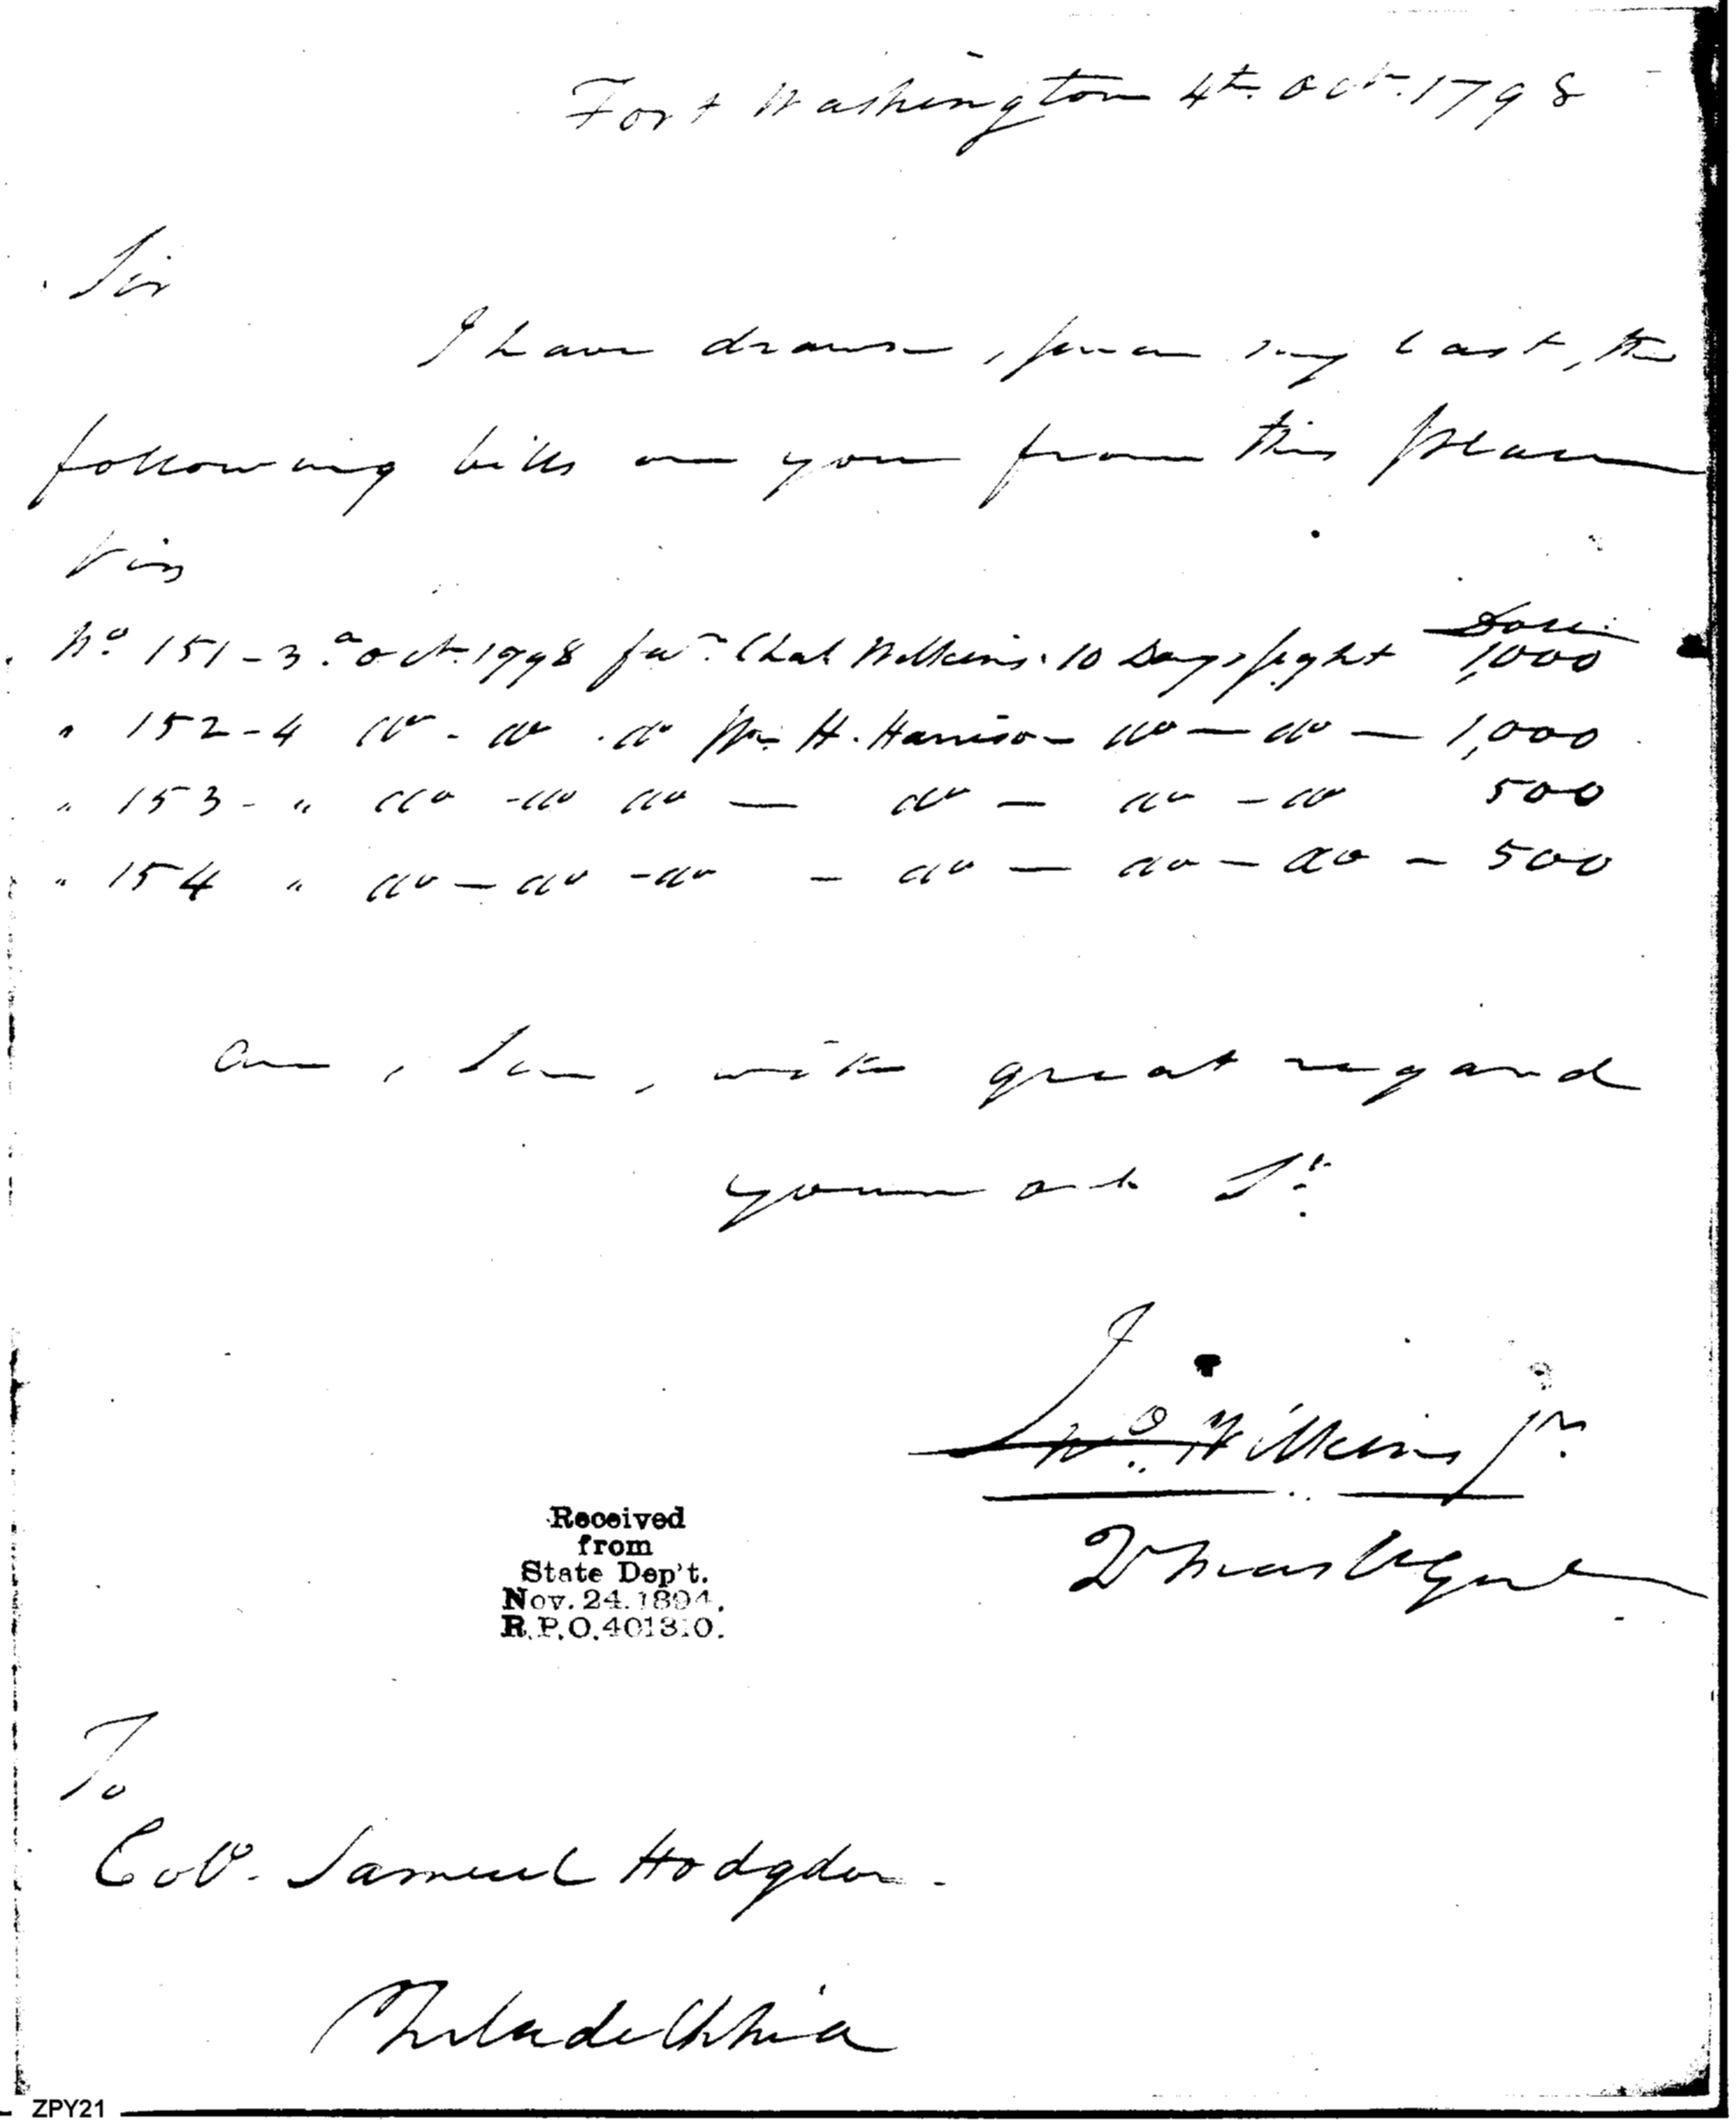 Fort Washington 4th. Octr. 1798
Sir
I have drawn, since my last, the
following bills on you from this place
Viz
No. 151 - 3d. Octr. 1798 favr. Chas. Wilkins. 10 Days sight Dolls. 1,000
" 152 - 4 do - do - do Wm. H. Harrison do — do — 1,000
" 153 - " do - do do — do — do - do 500
" 154 " do — do - do - do — do - do - 500
am, Sir, with great regard
your ob St.
Jno. Wilkins Jr.
Qr Mas Genl
Received
from
State Dep't.
Nov. 24. 1894.
R.P.O. 401310.
To
Colo. Samuel Hodgdon.
Philadelphia
ZPY21